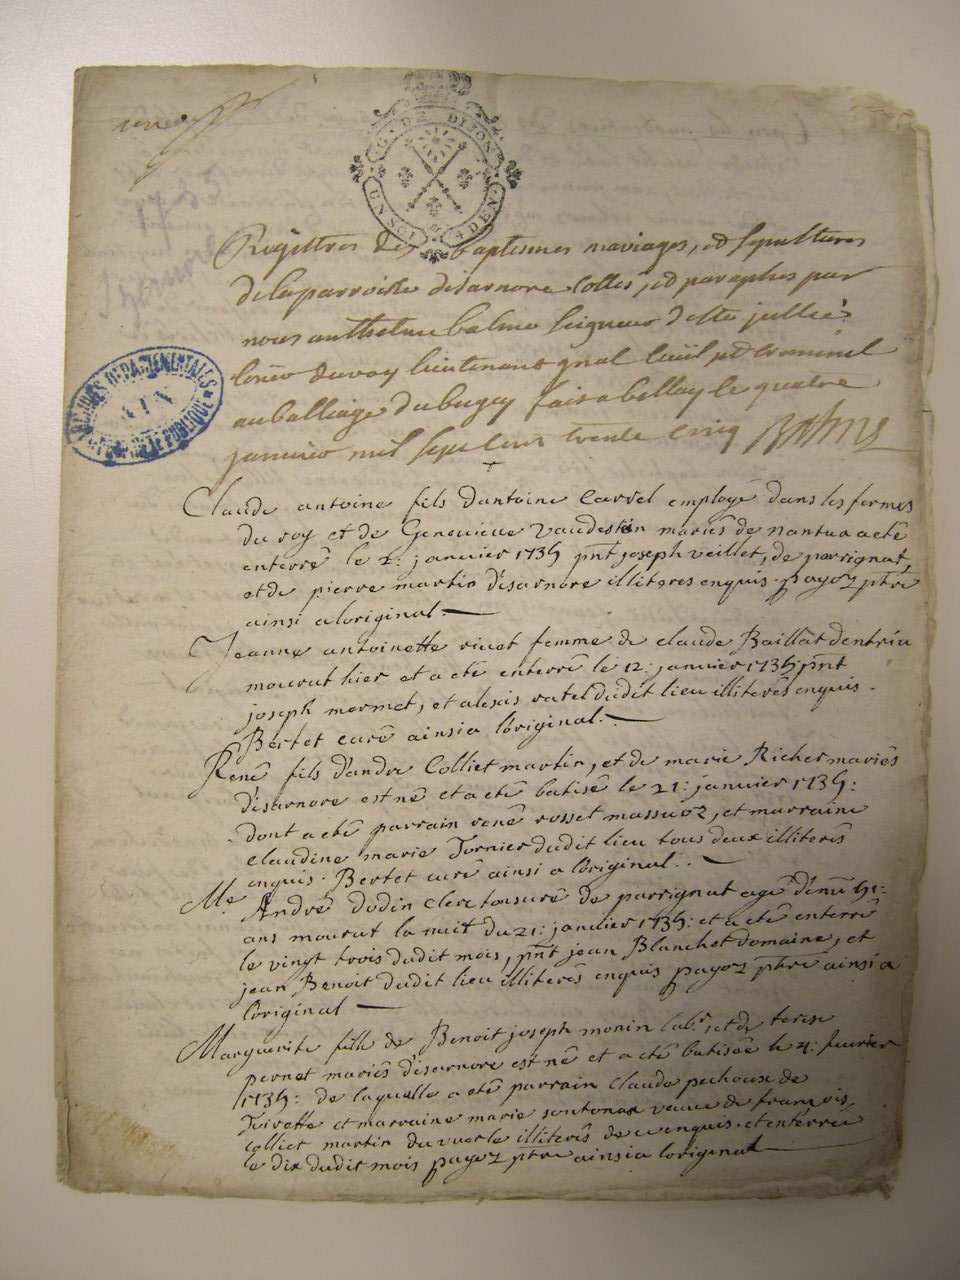 une
G. DE DIJON
UN SOL 4 DEN.
1735
Registres des baptesmes mariages, et sepultures
de la parroisse d'isarnore Cottés, et paraphés par
nous anthelme balme seigneur de ste jullie
lieutenant gnal civil et criminel
au balliage du bugey fait a belley le quatre
janvier mil sept cent trente cinq Balme
ARCHIVES DÉPARTEMENTALES
AIN
RÉPUBLIQUE
Claude antoine fils d'antoine Carrel employé dans les fermes
du roy et de Genevieve vaudestin mariés de nantua a eté
enterré le 2: janvier 1735 pñt joseph veillet, de parrignat,
et de pierre martin d'isarnore illiteres enquis. payoz ptre
ainsi a loriginal
Jeanne antoinette rivet femme de claude Baillat dentria
mourut hier et a eté enterré le 12: janvier 1735 pñt
joseph mermet, et alexis ratel dudit lieu illiterés enquis.
Bertet curé ainsi a l'original.
René fils d'andre Colliet martin, et de marie Richer mariés
d'isarnore est né et a eté batisé le 21: janvier 1735:
dont a eté parrain rené rosset massuoz, et marraine
claudine marie Tornier dudit lieu tous deux illiterés
enquis. Bertet curé ainsi a l'original.
Me. André dodin clerc tonsuré de parrignat agé d'env
ans mourut la nuit du 21: janvier 1735: et a eté enterré
le vingt trois dudit mois, pñt jean Blanchet domaine, et
jean Benoit dudit lieu illiterés enquis payoz ptre ainsi a
l'original
Marguerite fille de Benoit joseph monin labr, et de terese
pernet mariés d'isarnore est né et a eté batisée le 4: fevrier
1735: de laquelle a eté parrain claude pechoux de
Tirette et marraine marie soutonax veuve de françois
colliet martin du verle illiterés de ce enquis. et enterré
le dix dudit mois payoz ptre ainsi a loriginal